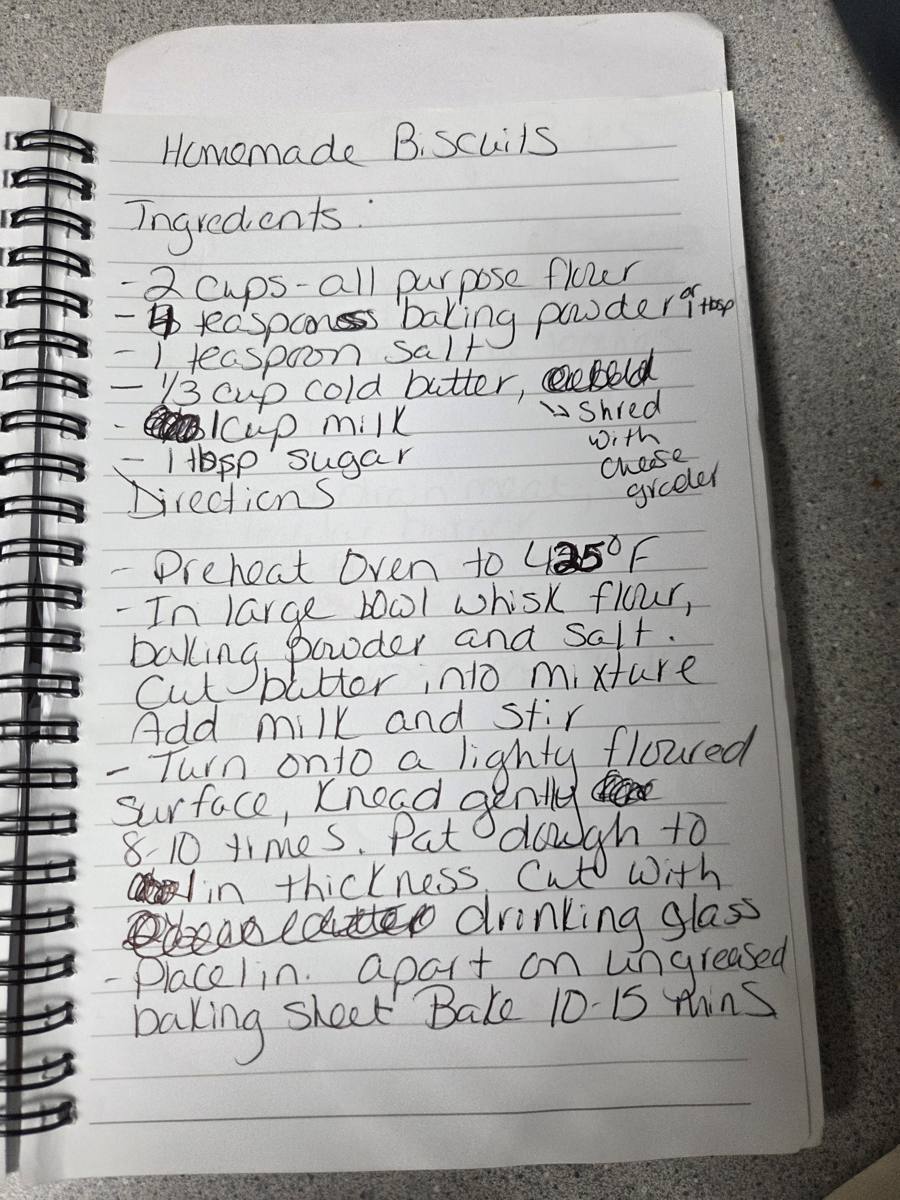 Homemade Biscuits
Ingredients:
- 2 cups - all purpose flour
- 4 teaspoons baking powder or 1 tbsp
- 1 teaspoon salt
- 1/3 cup cold butter,
↳ Shred
with
cheese
grader
- 1 cup milk
- 1 tbsp sugar
Directions
- Preheat Oven to 425°F
- In large bowl whisk flour,
baking powder and salt.
Cut butter into mixture
Add milk and stir
- Turn onto a lighty floured
surface, Knead gently
8-10 times. Pat dough to
1 in thickness. Cut with
drinking glass
- Place 1 in. apart on ungreased
baking sheet Bake 10-15 mins